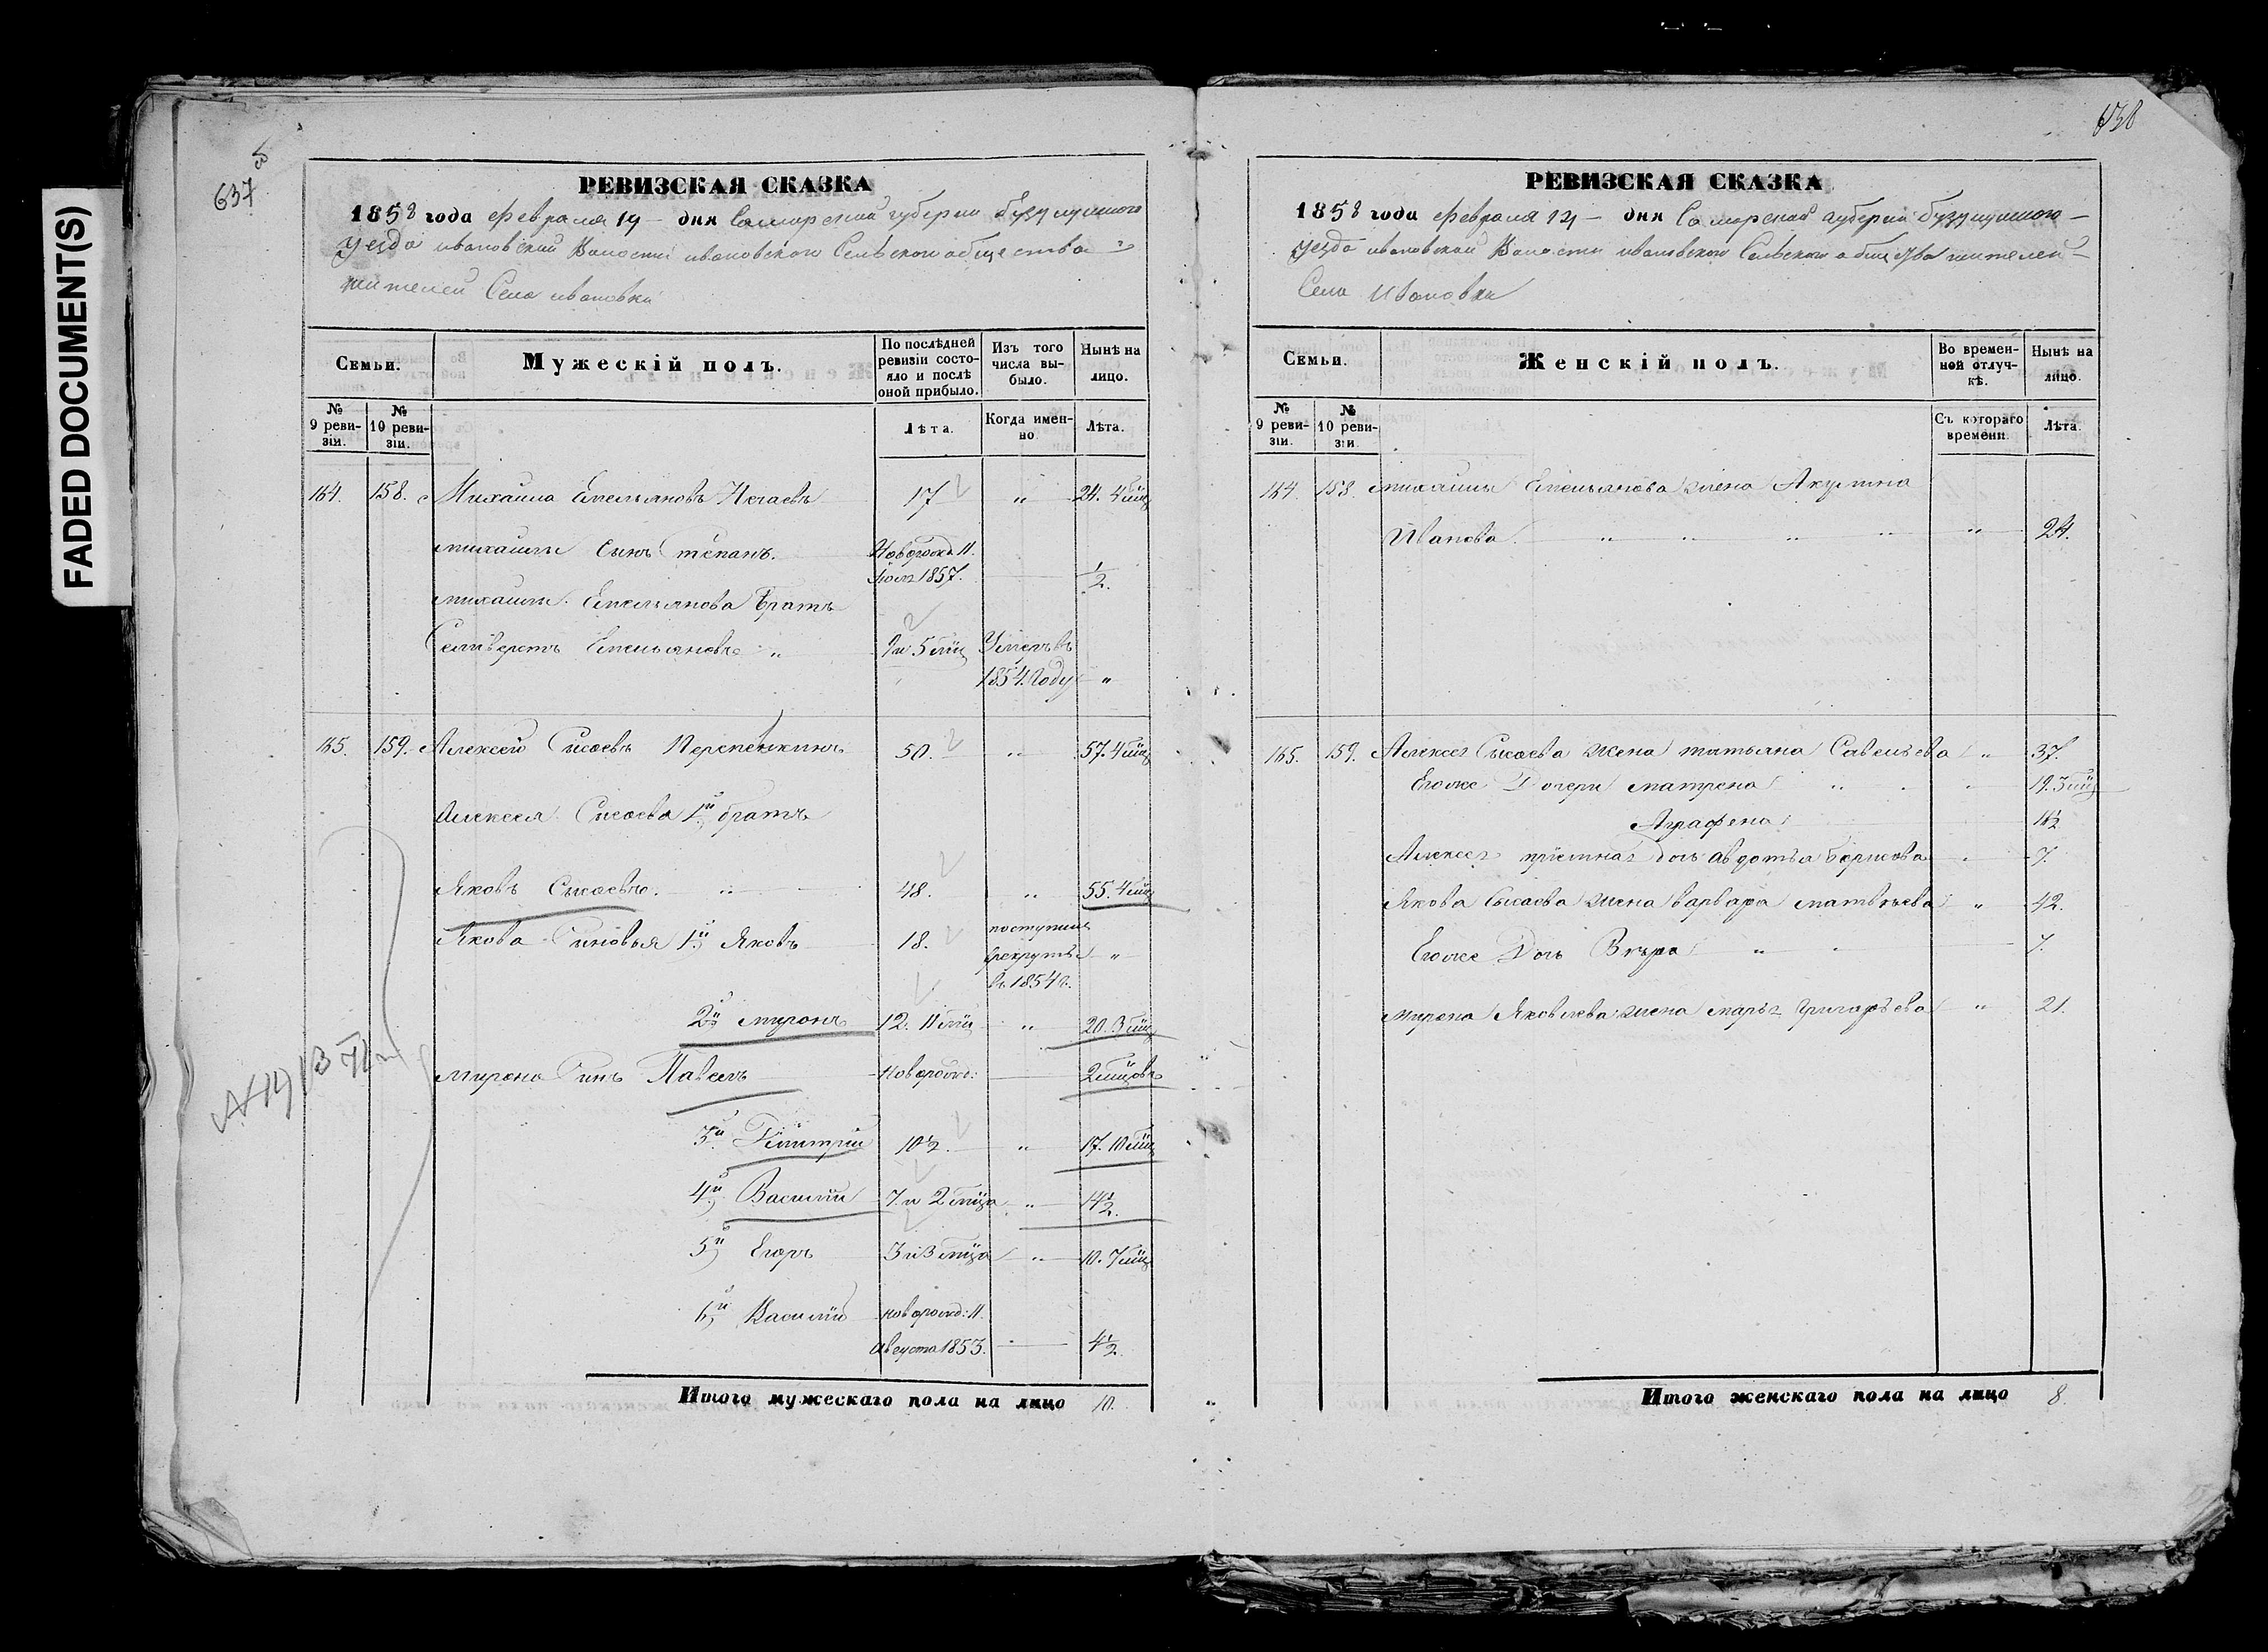 FADED DOCUMENT(S)
637
РЕВИЗСКАЯ СКАЗКА
1858 года Февраля 19 дня Самарской губернии Бузулуцкого
уезда ивановской Волости ивановского Сельского общества
жителей Села ивановки
Семьи.
Мужескій полъ.
По послѣдней ревизіи состояло и послѣ оной прибыло.
Изъ того числа выбыло.
Нынѣ на лицо.
№ 9 ревизіи.
№ 10 ревизіи.
Лѣта.
Когда именно.
Лѣта.
164. 158. Михаила Емельяновъ Нечаевъ 17 " 24. 4 мѣц
михаилы Сынъ Степанъ. Новорожд. 11.
1857. ½.
михаилы Емельянова братъ
Селиверстъ Емельяновъ " 9 и 5 мѣц Умеръ въ
1854. Году "
165. 159. Алексей Сысаевъ Перепелкинъ 50. " 57. 4 мѣц
Алексея Сысаева 1й братъ
Яковъ Сысаевъ. " 48. " 55. 4 мѣц
Якова Сыновья 1й Яковъ 18. поступилъ
врекруты "
въ 1854 г.
2й миронъ 12. 11 мѣц " 20. 3 мѣц
мирона Сынъ Павелъ новорожд: 2 мѣцовъ
3й Дмитрий 10½. " 17. 10 мѣц
4й Василий 7. и 2 мѣца " 14½.
5й Егоръ 3 и 3 мѣца " 10. 7 мѣц
6й Василий новорожд: 11.
августа 1853. 4½.
Итого мужескаго пола на лицо 10.
638
РЕВИЗСКАЯ СКАЗКА
1858 года Февраля 19 дня Самарской губернии Бузулуцкого
уезда ивановской Волости ивановского Сельского общества жителей
Села Ивановки
Семьи.
Женскій полъ.
Во временной отлучкѣ.
Нынѣ на лицо.
№ 9 ревизіи.
№ 10 ревизіи.
Съ котораго времени.
Лѣта.
164. 158. михаилы Емельянова жена Акулина
Иванова. " " " " " 24.
165. 159. Алексея Сысаева жена татьяна Савельева " 37.
Егоже Дочери матрена " 19. 3 мѣц
Аграфена
Алексея приемная дочь авдотья борисова 7.
Якова Сысаева жена варвара матвѣева " 42.
Егоже Дочь Вѣра " 7.
мирона Яковлева жена марья григорьева " 21.
Итого женскаго пола на лицо 8.